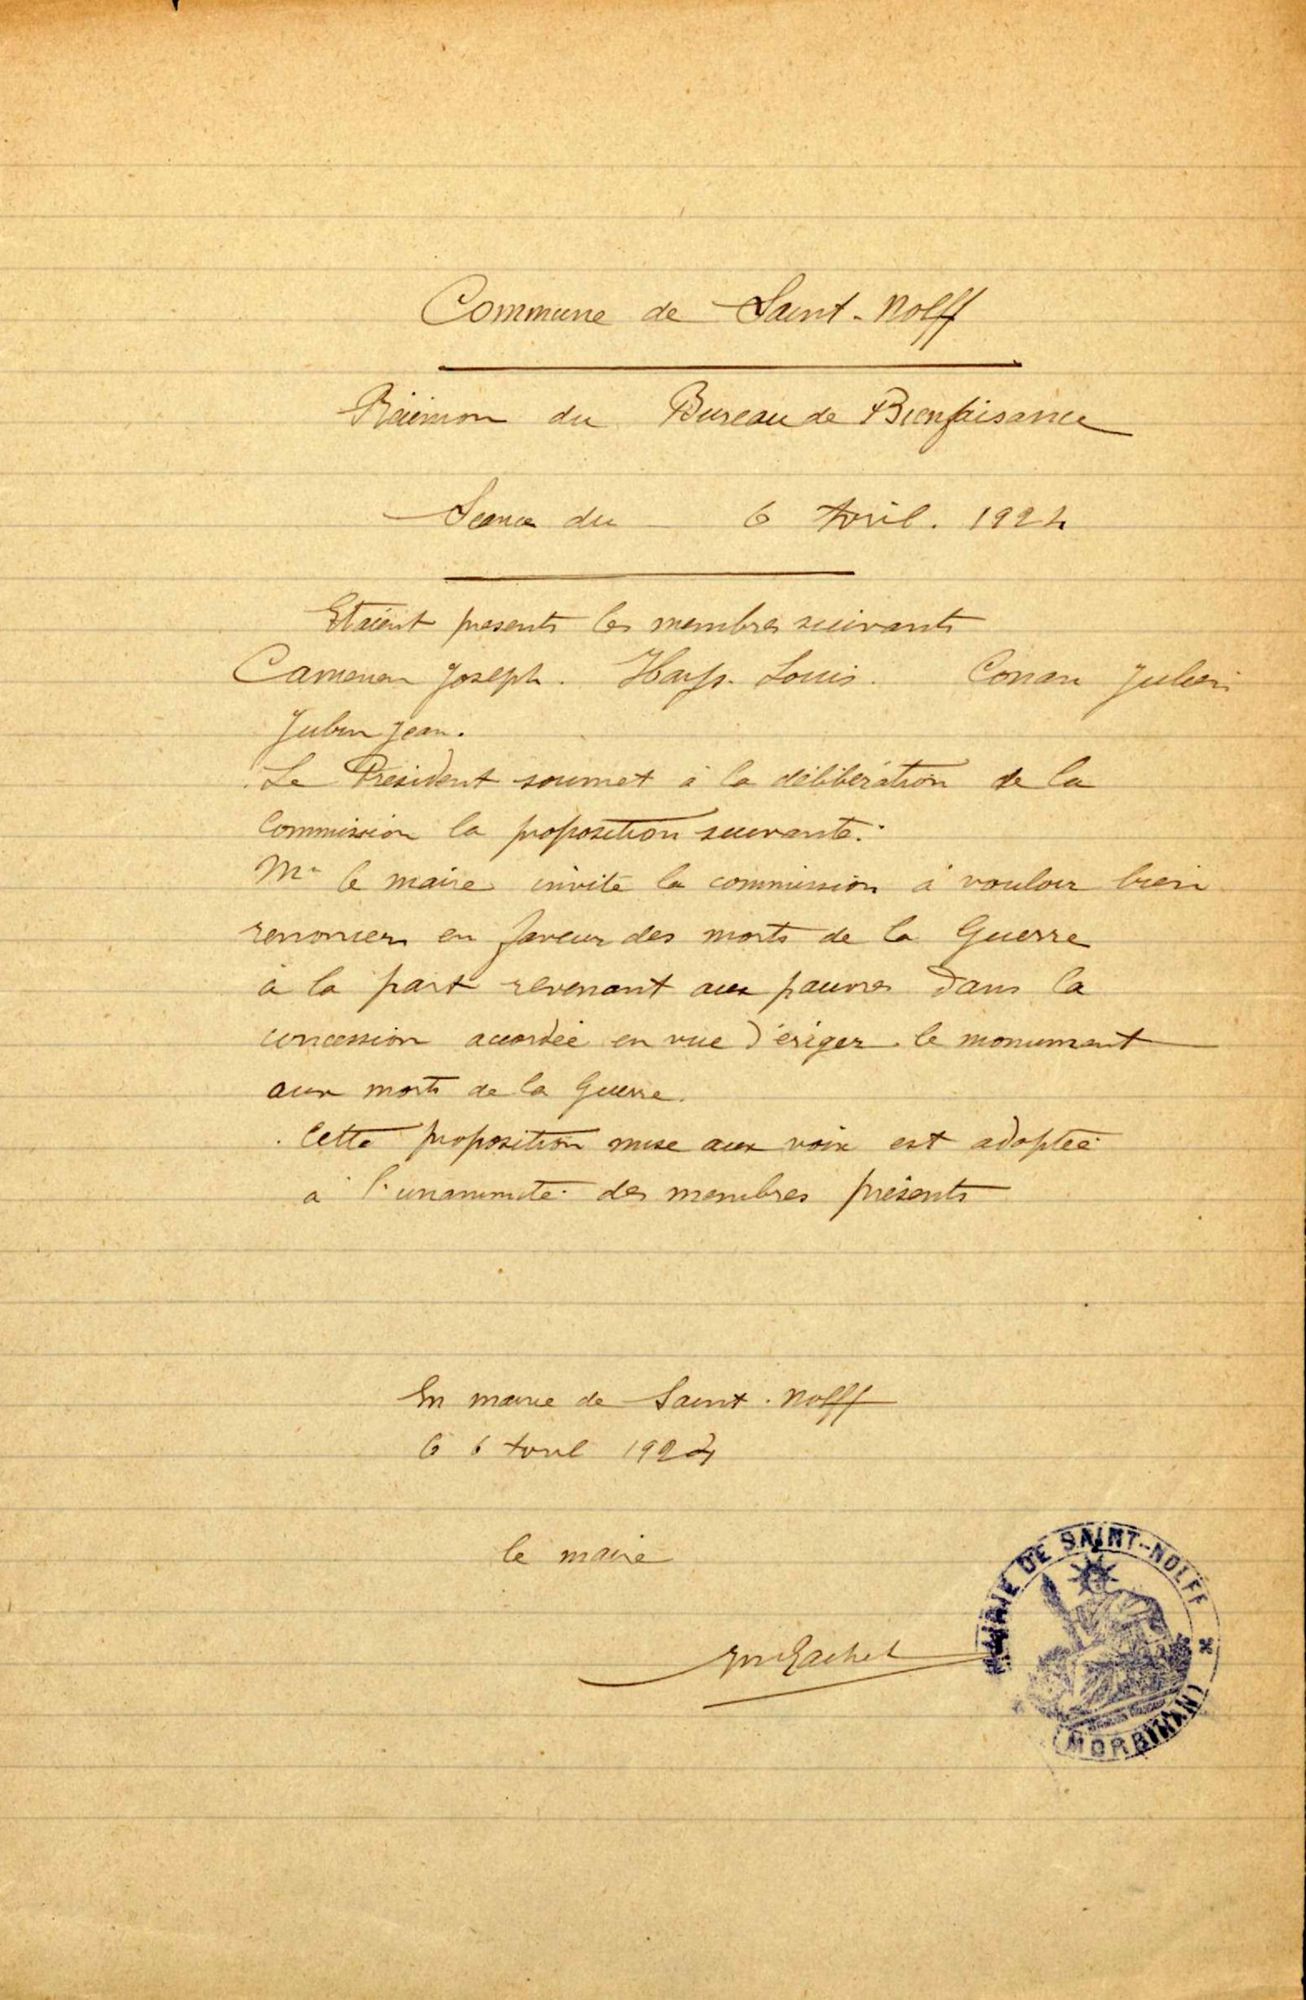 Commune de Saint-Nolff
Réunion du Bureau de Bienfaisance
Séance du 6 Avril. 1924
Etaient présents les membres suivants
Camenen Joseph. Louis. Conan Julien
Jubin Jean.
Le Président soumet à la délibération de la
Commission la proposition suivante:
Mr le maire invite la commission à vouloir bien
renoncer en faveur des morts de la Guerre
à la part revenant aux pauvres dans la
concession accordée en vue d'ériger le monument
aux morts de la Guerre.
Cette proposition mise aux voix est adoptée
à l'unanimité des membres présents
En mairie de Saint-Nolff
le 6 Avril 1924
le maire
MAIRIE DE SAINT-NOLFF
(MORBIHAN)